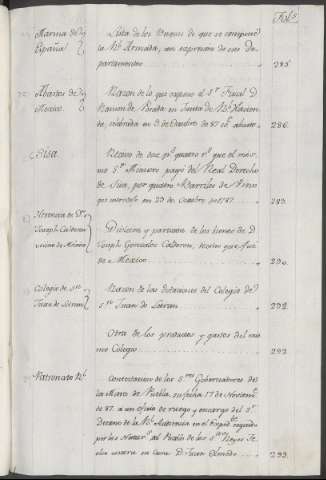 Fols.
Marina de
España
Lista de los Buques de que se compone
la Rl. Armada, con expresion de sus De-
partamentos
285.
Abastos de
Mexico.
Razon de lo que expuso el Sr. Fiscal D.
Ramon de Posada en Junta de Rl. Hacien-
da, celebrada en 3 de Octubre de 87
286.
Sisa.
Recivo de doce ps. quatro rs. que el mis-
mo Sr. pagó del Real Derecho
de Sisa, por quatro Barriles de Vino
que introdujo en 23 de Octubre de 1787.
289.
Herencia de Dn.
Joseph Calderon
vecino de Mexico
Division y particion de los bienes de D.
Joseph Gonzalez Calderon, vecino que fue
de Mexico
290.
Colegio de Sn.
Juan de Letran
Razon de las dotaciones del Colegio de
Sn. Juan de Letran
292.
Otra de los productos y gastos del mis-
mo Colegio
292.
Patronato Rl.
Contestacion de los Sres. Gobernadores de
la Mitra de Puebla, su fecha 17 de Noviemre.
de 87. á un oficio de ruego y encargo del Sr.
Decano de la Rl. Audiencia en el
por las
293.